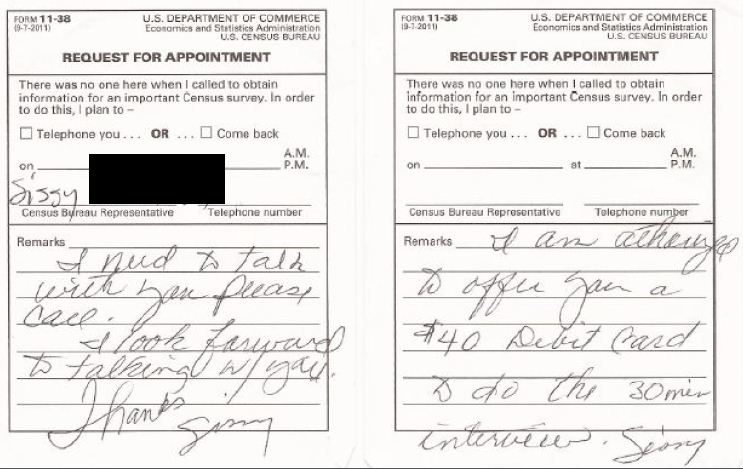 FORM 11-38
(9-7-2011)
U.S. DEPARTMENT OF COMMERCE
Economics and Statistics Administration
U.S. CENSUS BUREAU
REQUEST FOR APPOINTMENT
There was no one here when I called to obtain
information for an important Census survey. In order
to do this, I plan to –
☐ Telephone you . . . OR . . . ☐ Come back
A.M.
on P.M.
Sissy
Census Bureau Representative Telephone number
Remarks I need to talk
with you please
call.
I look forward
to talking w/you.
Thanks
Sissy
FORM 11-38
(9-7-2011)
U.S. DEPARTMENT OF COMMERCE
Economics and Statistics Administration
U.S. CENSUS BUREAU
REQUEST FOR APPOINTMENT
There was no one here when I called to obtain
information for an important Census survey. In order
to do this, I plan to –
☐ Telephone you . . . OR . . . ☐ Come back
A.M.
on at P.M.
Census Bureau Representative Telephone number
Remarks I am
to offer you a
$40 Debit Card
to do the 30 min
interview. Sissy